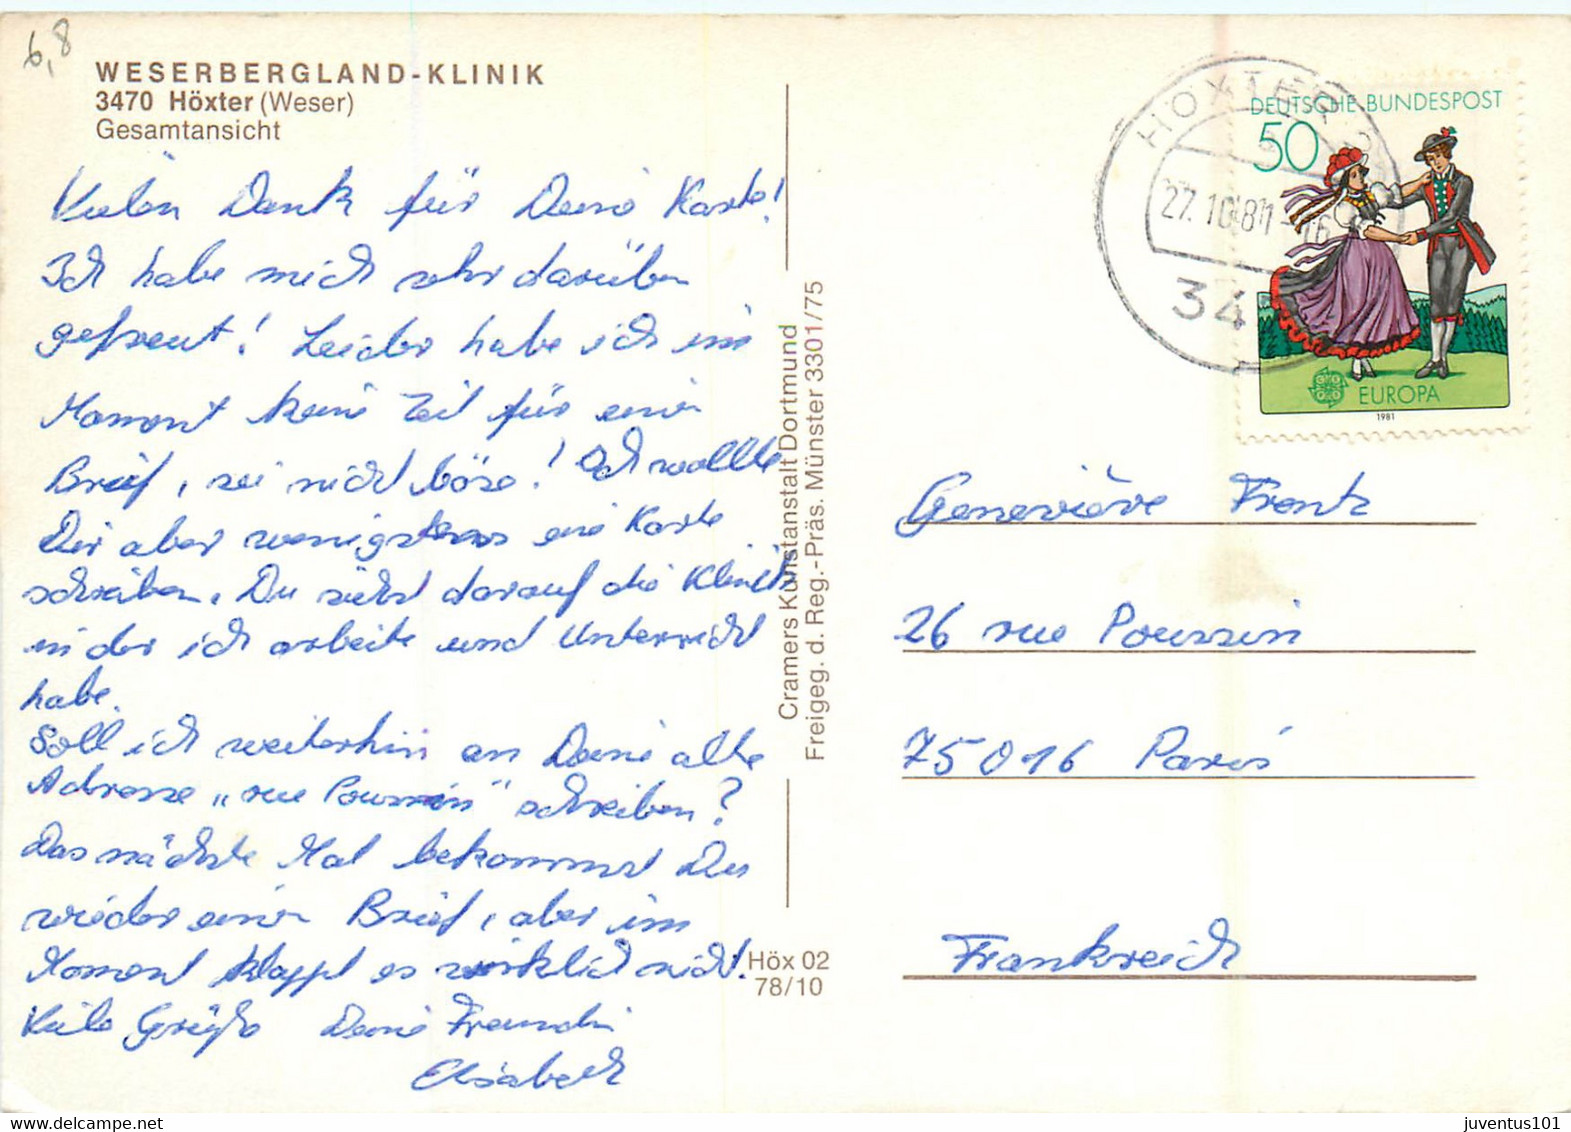 6,8
WESERBERGLAND-KLINIK
3470 Höxter (Weser)
Gesamtansicht
Vielen Dank für Deine Karte!
Ich habe mich sehr darüber
gefreut! Leider habe ich im
Moment keine Zeit für einen
Brief, sei nicht böse! Ich wollte
Dir aber wenigstens eine Karte
schreiben. Du siehst darauf die Klinik
in der ich arbeite und Unterricht
habe.
Soll ich weiterhin an Deine alte
Adresse „rue Poussin" schreiben?
Das nächste Mal bekommst Du
wieder einen Brief, aber im
Moment klappt es wirklich nicht.
Viele Grüße Deine Freundin
Elisabeth
Cramers Kunstanstalt Dortmund
Freigeg. d. Reg.-Präs. Münster 3301/75
Höx 02
78/10
HÖXTER
27.10.81-16
34
DEUTSCHE BUNDESPOST
50
EUROPA
1981
Geneviève Frentz
26 rue Poussin
75016 Paris
Frankreich
www.delcampe.net
juventus101